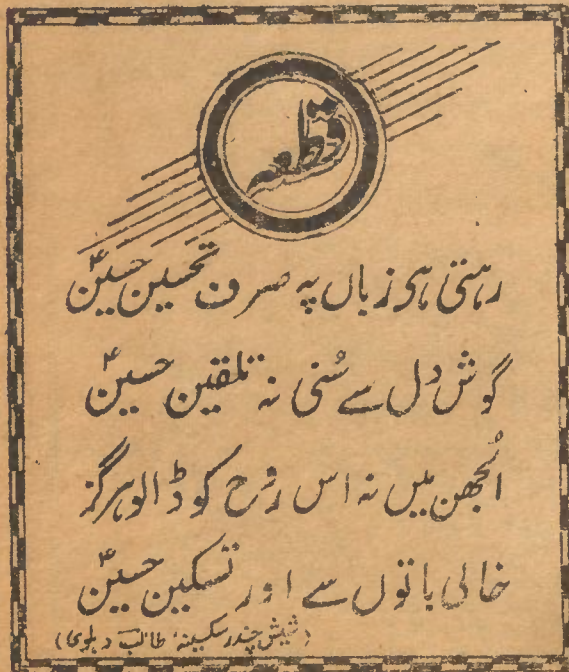 قطعہ
رہتی ہی زباں پہ صرف تحسین حسینؑ
گوش دل سے سُنی نہ تلقین حسینؑ
اُلجھن میں نہ اس رُوح کو ڈالو ہرگز
خالی باتوں سے اور تسکین حسینؑ
(شیش چندر سکسینہ طالب دہلوی)